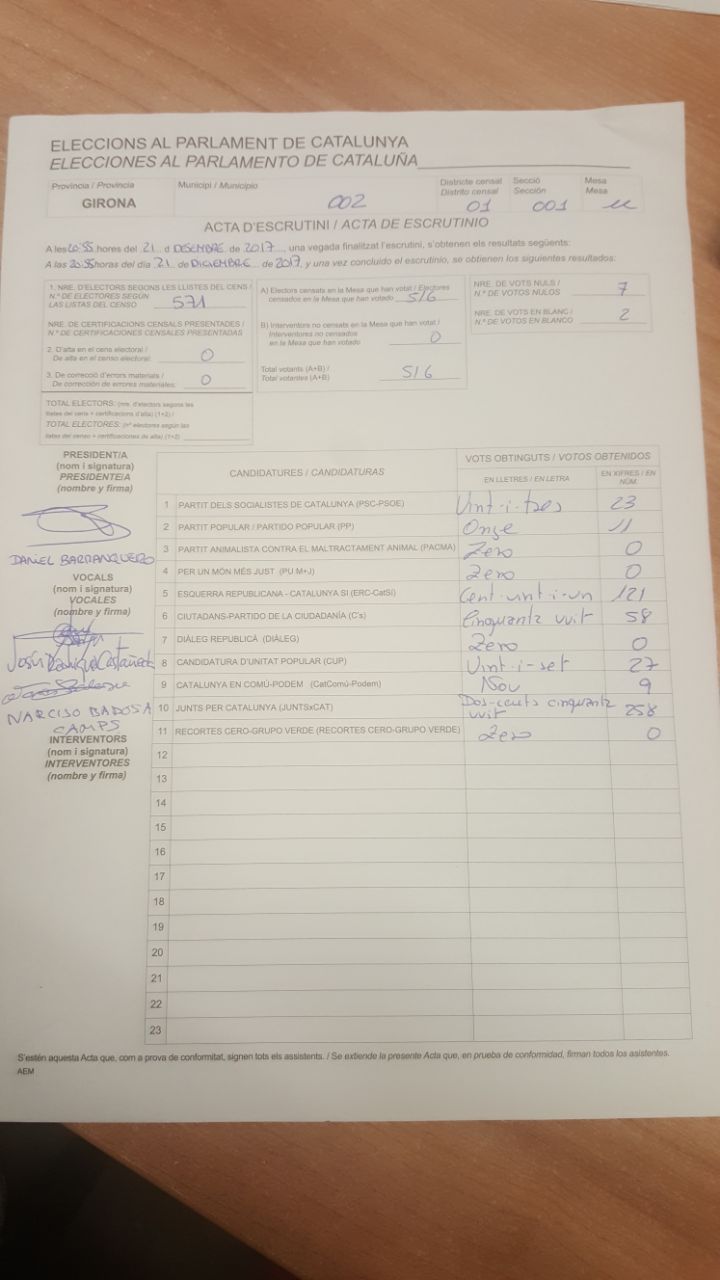 ELECCIONS AL PARLAMENT DE CATALUNYA
ELECCIONES AL PARLAMENTO DE CATALUÑA
Província / Provincia
GIRONA
Municipi / Municipio
002
Districte censal
Distrito censal
01
Secció
Sección
001
Mesa
Mesa
ACTA D'ESCRUTINI / ACTA DE ESCRUTINIO
A les 20:55 hores del 21 d DESEMBRE de 2017, una vegada finalitzat l'escrutini, s'obtenen els resultats següents:
A las 20:55 horas del día 21 de DICIEMBRE de 2017, y una vez concluido el escrutinio, se obtienen los siguientes resultados:
1. NRE. D'ELECTORS SEGONS LES LLISTES DEL CENS /
N.º DE ELECTORES SEGÚN
LAS LISTAS DEL CENSO 571
NRE. DE CERTIFICACIONS CENSALS PRESENTADES /
N.º DE CERTIFICACIONES CENSALES PRESENTADAS
2. D'alta en el cens electoral /
De alta en el censo electoral: 0
3. De correcció d'errors materials /
De corrección de errores materiales: 0
TOTAL ELECTORS: (nre. d'electors segons les
llistes del cens + certificacions d'alta) (1+2) /
TOTAL ELECTORES: (nº electores según las
listas del censo + certificaciones de alta) (1+2)
A) Electors censats en la Mesa que han votat / Electores
censados en la Mesa que han votado 516
B) Interventors no censats en la Mesa que han votat /
Interventores no censados
en la Mesa que han votado 0
Total votants (A+B) /
Total votantes (A+B) 516
NRE. DE VOTS NULS /
N.º DE VOTOS NULOS 7
NRE. DE VOTS EN BLANC /
N.º DE VOTOS EN BLANCO 2
PRESIDENT/A
(nom i signatura)
PRESIDENTE/A
(nombre y firma)
DANIEL BARRANQUERO
VOCALS
(nom i signatura)
VOCALES
(nombre y firma)
NARCISO BADOSA
CAMPS
INTERVENTORS
(nom i signatura)
INTERVENTORES
(nombre y firma)
CANDIDATURES / CANDIDATURAS
VOTS OBTINGUTS / VOTOS OBTENIDOS
EN LLETRES / EN LETRA
EN XIFRES / EN NÚM.
1 PARTIT DELS SOCIALISTES DE CATALUNYA (PSC-PSOE) Vint-i-tres 23
2 PARTIT POPULAR / PARTIDO POPULAR (PP) Onze 11
3 PARTIT ANIMALISTA CONTRA EL MALTRACTAMENT ANIMAL (PACMA) Zero 0
4 PER UN MÓN MÉS JUST (PU M+J) Zero 0
5 ESQUERRA REPUBLICANA - CATALUNYA SI (ERC-CatSí) Cent-vint-i-un 121
6 CIUTADANS-PARTIDO DE LA CIUDADANÍA (C's) Cinquanta vuit 58
7 DIÀLEG REPUBLICÀ (DIÀLEG) Zero 0
8 CANDIDATURA D'UNITAT POPULAR (CUP) Vint-i-set 27
9 CATALUNYA EN COMÚ-PODEM (CatComú-Podem) Nou 9
10 JUNTS PER CATALUNYA (JUNTSxCAT) Dos-cents cinquanta vuit 258
11 RECORTES CERO-GRUPO VERDE (RECORTES CERO-GRUPO VERDE) Zero 0
12
13
14
15
16
17
18
19
20
21
22
23
S'estén aquesta Acta que, com a prova de conformitat, signen tots els assistents. / Se extiende la presente Acta que, en prueba de conformidad, firman todos los asistentes.
AEM